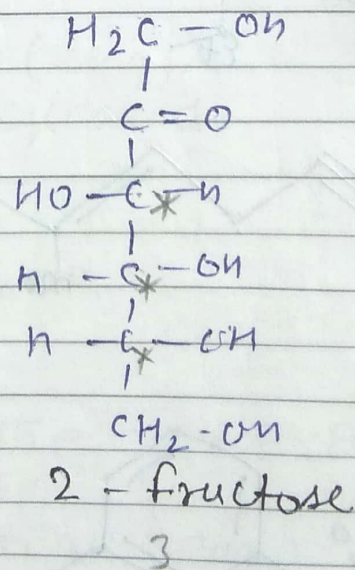 H2C - OH
C = O
HO - C* - H
H - C* - OH
H - C* - OH
CH2 - OH
2 - fructose
3